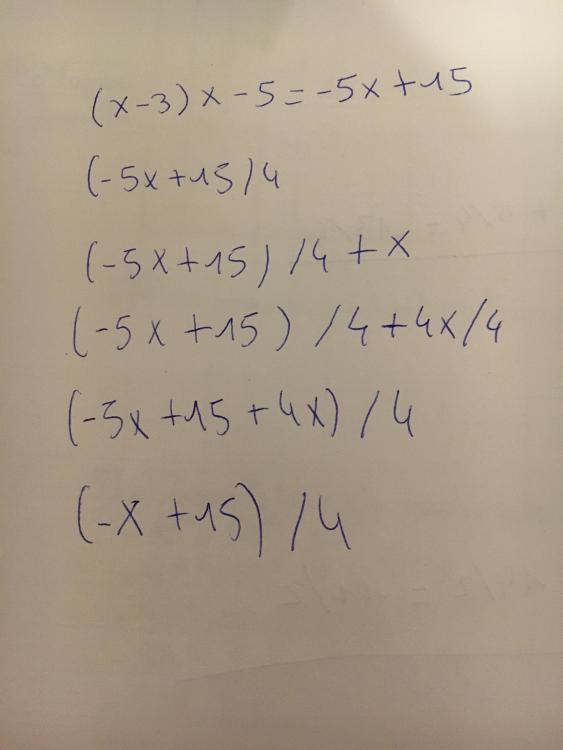 (x-3)x-5=-5x+15
(-5x+15/4
(-5x+15)/4+x
(-5x+15)/4+4x/4
(-5x+15+4x)/4
(-x+15)/4